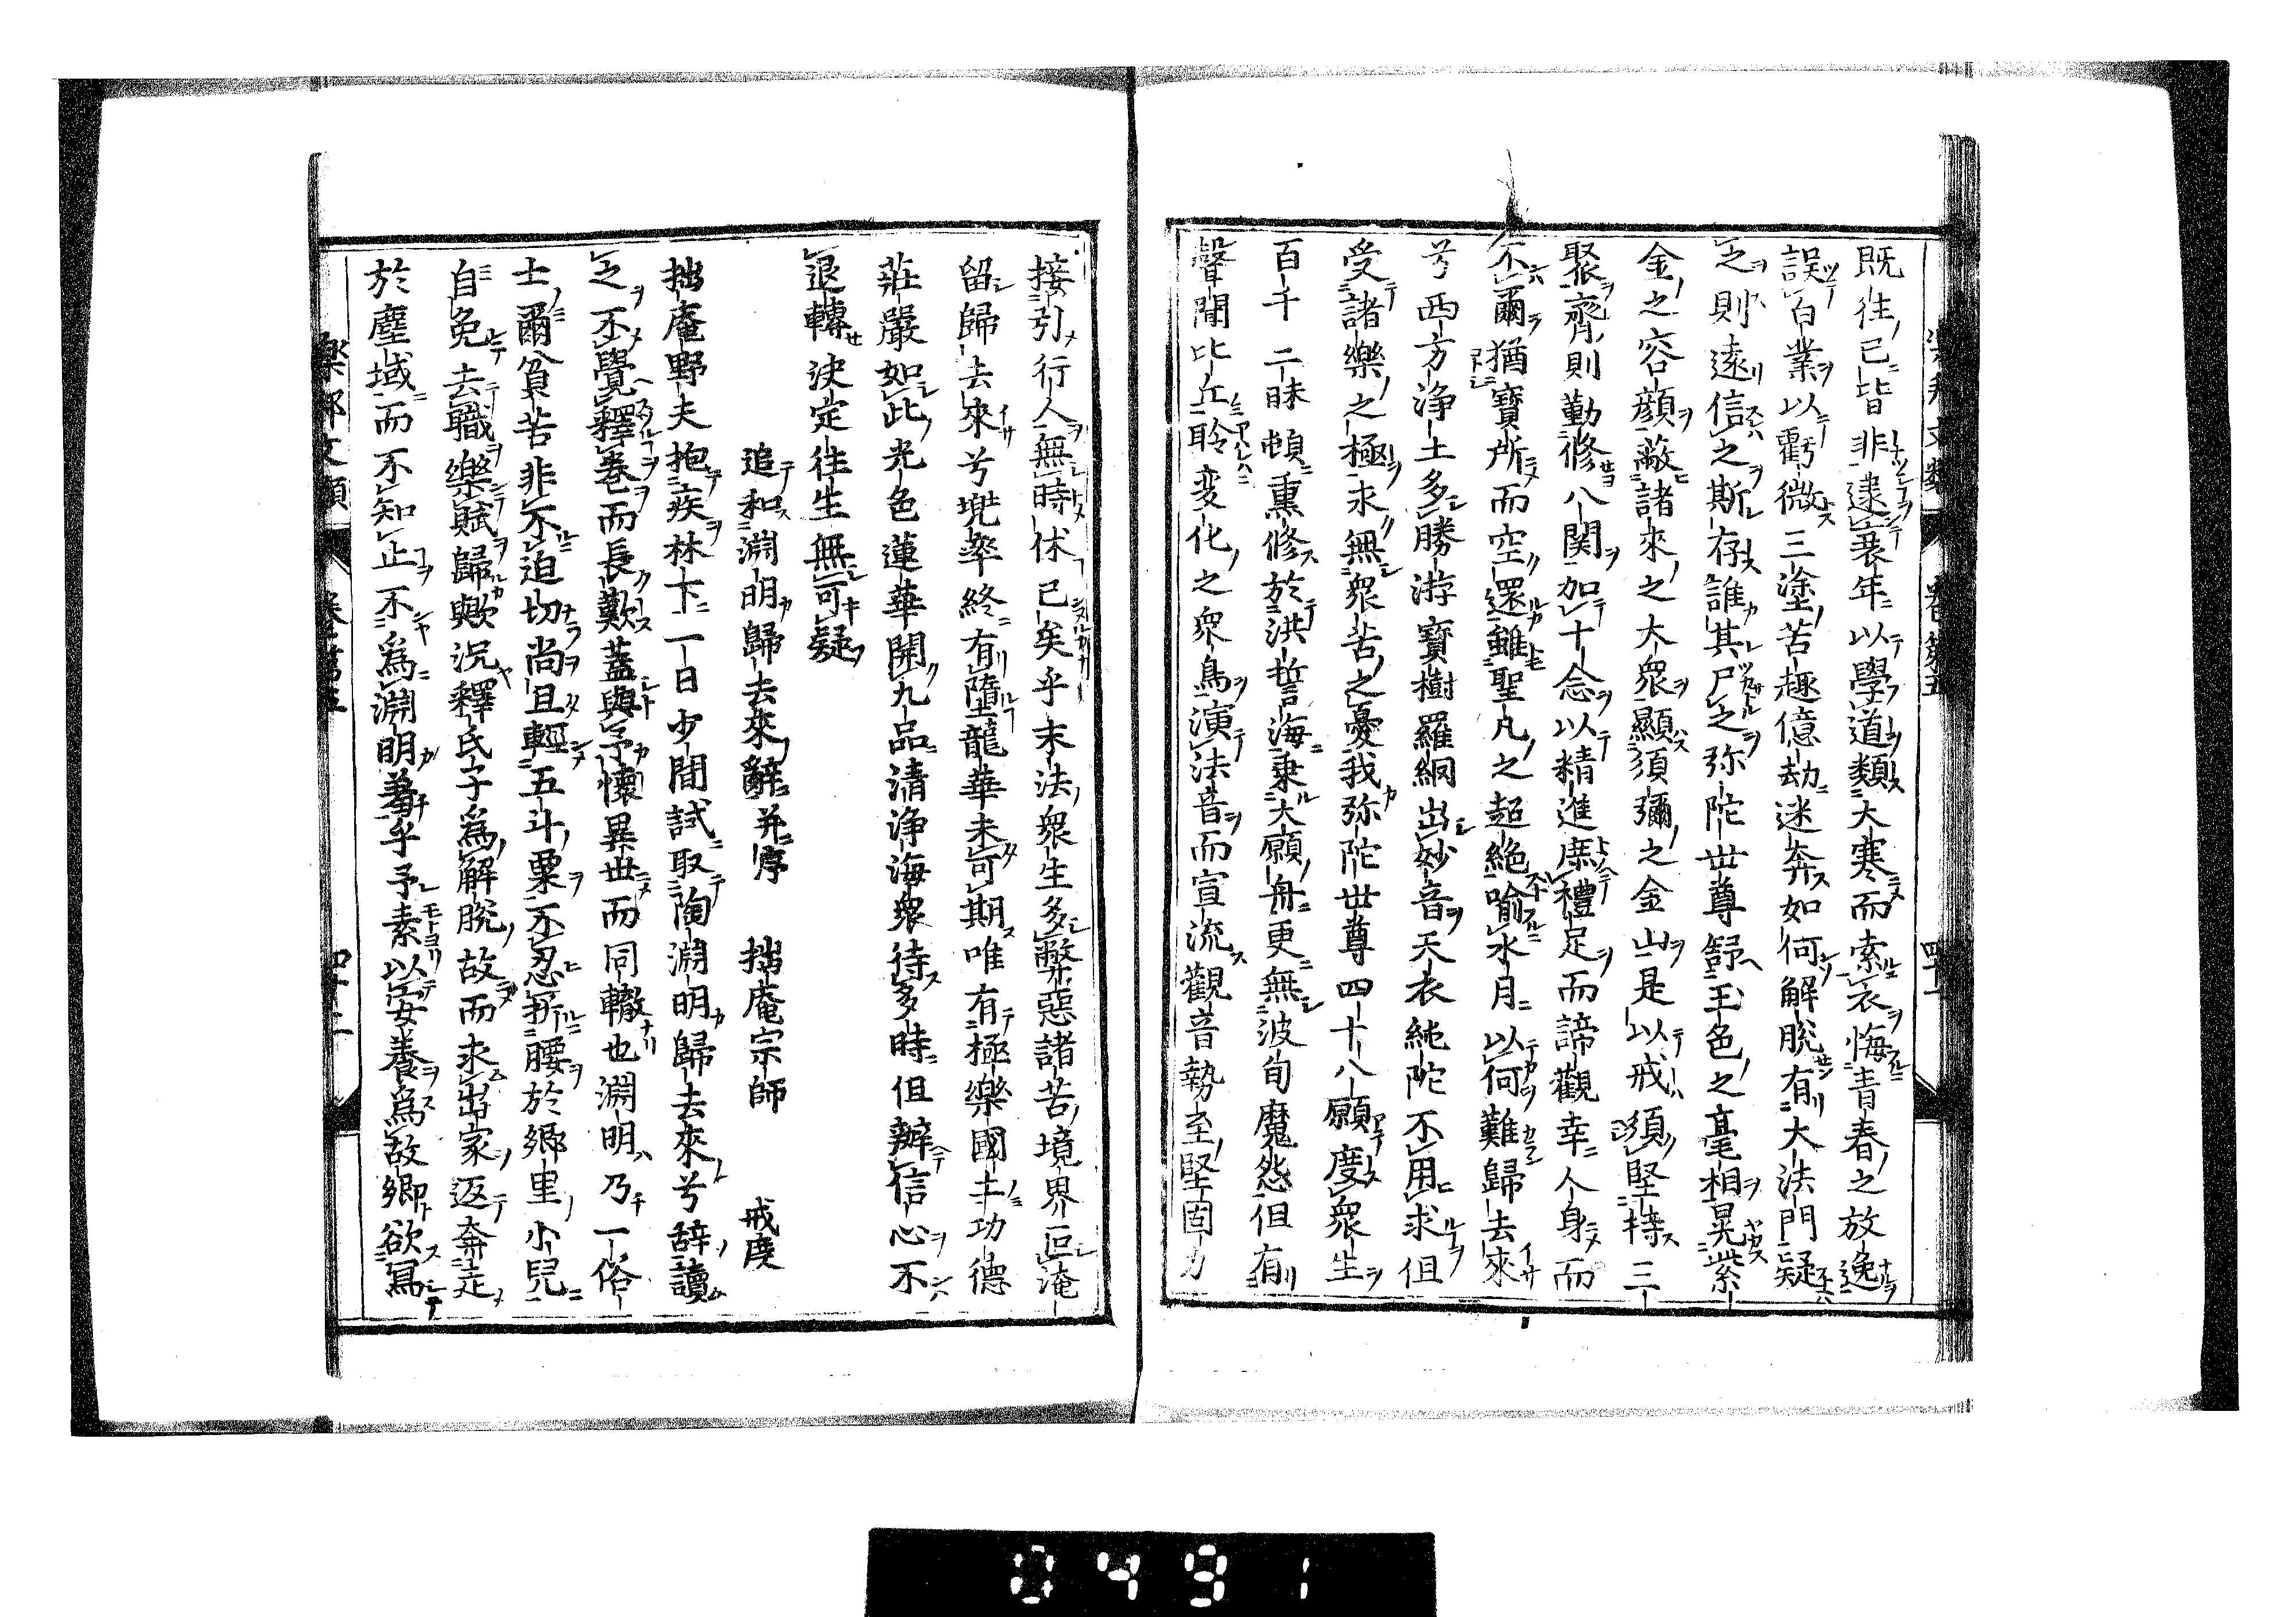 既往已皆非逮衰年以學道類大寒而索衣悔青春之放逸
誤百業以虧微三塗苦趣億劫迷奔如何解脫有大法門疑
之則遠信之斯存誰其尸之弥陀世尊舒玉色之毫相晃紫
金之容顏蔽諸來之大衆顯須彌之金山是以戒須堅持三
聚齊則勤修八関加十念以精進庶禮足而諦觀幸人身而
不爾猶寶所而空還雖聖凡之超絶喻水月以何難歸去來
兮西方浄土多勝游寶樹羅網出妙音天衣純陀不用求但
受諸樂之極求無衆苦之憂我弥陀世尊四十八願度衆生
百千二昧頓熏修於洪誓海乗大願舟更無波旬魔怨但有
聲聞比丘聆変化之衆鳥演法音而宣流觀音勢至堅固力
接引行人無時休已矣乎末法衆生多弊惡諸苦境界叵淹
留歸去來兮兠率終有墮龍華未可期唯有極樂國土功德
莊嚴如此光色蓮華開九品清浄海衆待多時但辦信心不
退轉決定往生無可疑
追和淵明歸去來辭并序 拙庵宗師 戒度
拙庵野夫抱疾林下一日少間試取陶淵明歸去來兮辞讀
之不覺釋卷而長歎蓋與予懷異世而同轍也淵明乃一俗
士爾貧苦非不迫切尚且輕五斗粟不忍折腰於郷里小兒
自免去職樂賦歸歟況釋氏子為解脫故而求出家返奔走
於塵域而不知止不為淵明羞乎予素以安養為故郷欲冩
樂邦文類 巻第五 四十二